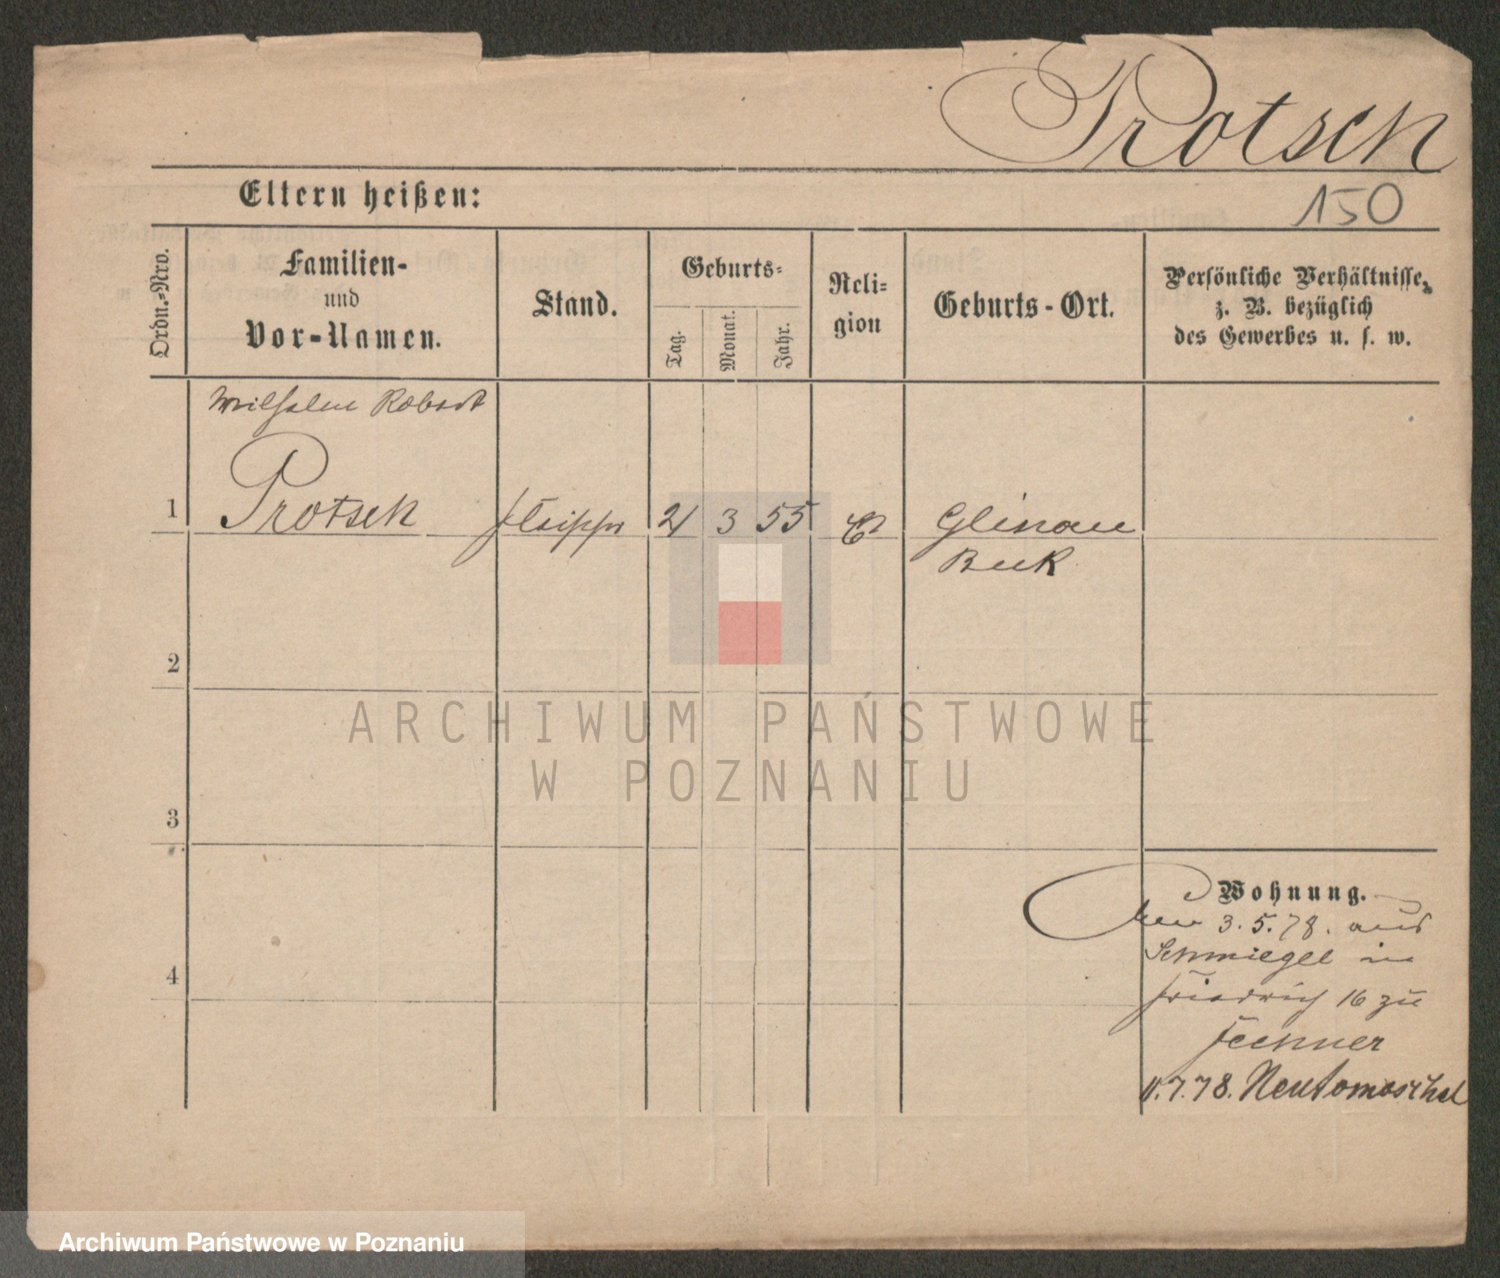 Protsch
Eltern heißen:
150
Ordn.-Nro.
Familien-
und
Vor-Namen.
Stand.
Geburts-
Tag.
Monat.
Jahr.
Reli-
gion
Geburts-Ort.
Persönliche Verhältnisse,
z. B. bezüglich
des Gewerbes u. s. w.
Wilhelm Robert
1 Protsch 3 55 Glinau
Buk
2
3
4
ARCHIWUM PAŃSTWOWE
W POZNANIU
Wohnung.
3.5.78. aus
Schmiegel in
Friedrich 16 zu
Fechner
7.78. Neutomischel
Archiwum Państwowe w Poznaniu